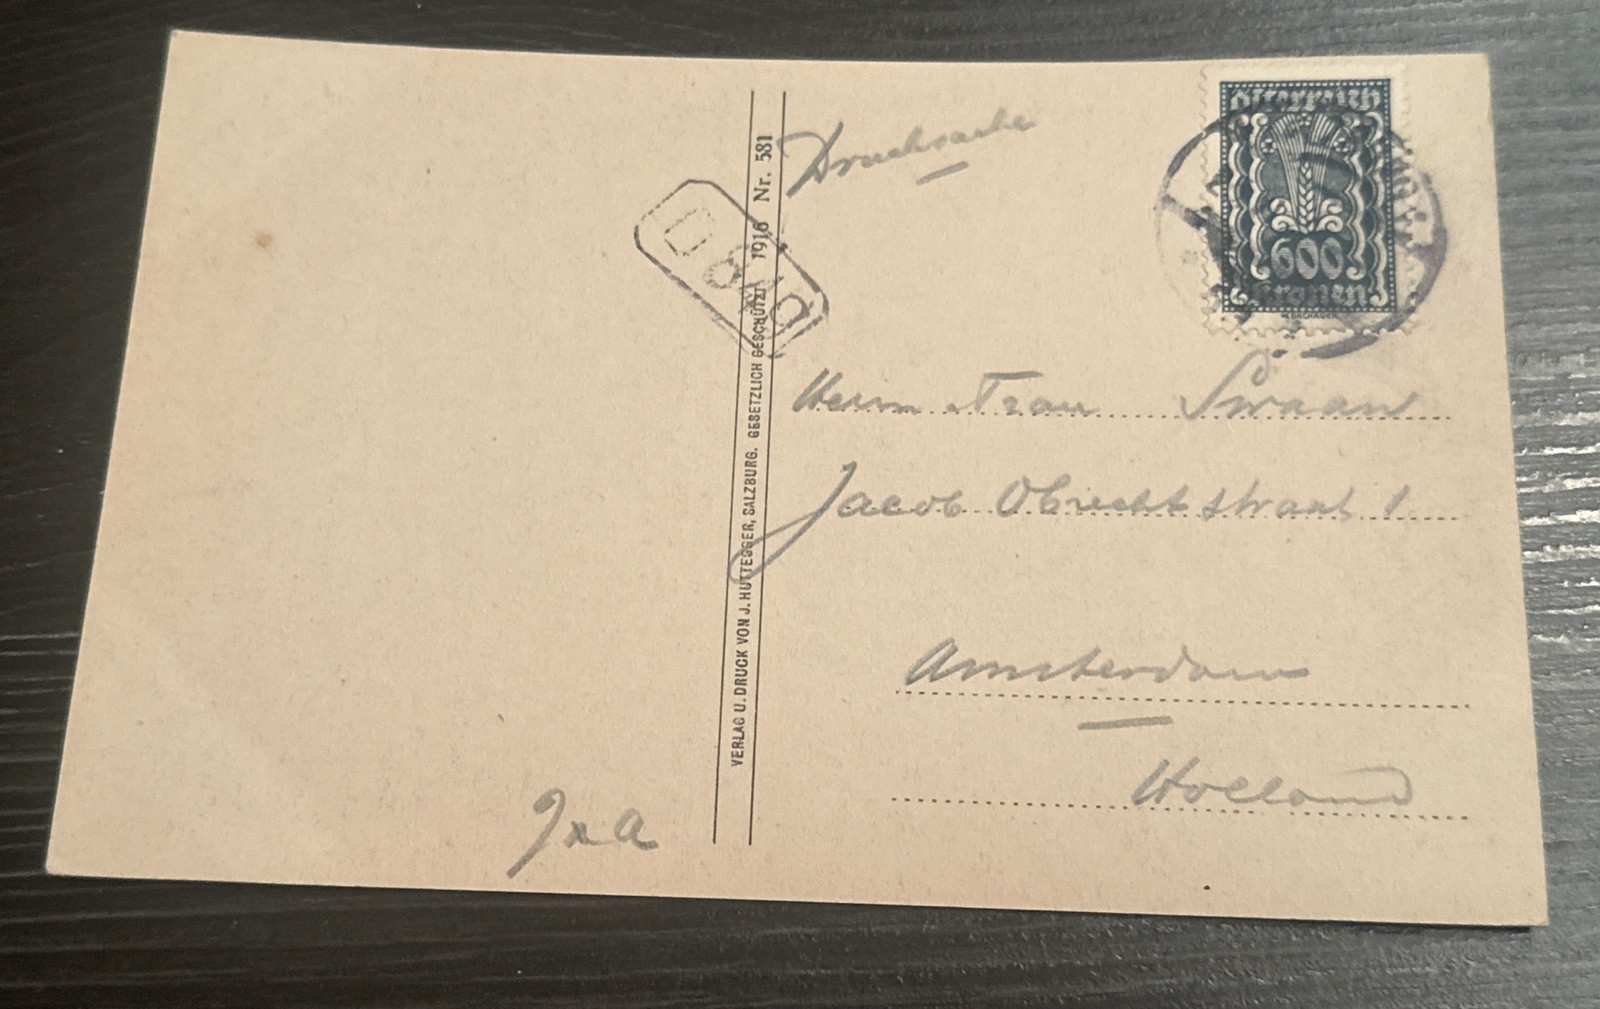 Drucksache
Österreich
600
Kronen
Herrn Frau Swaan
Jacob Obrechtstraat 1
Amsterdam
Holland
VERLAG U. DRUCK VON J. HUTTEGGER, SALZBURG. GESETZLICH GESCHÜTZT 1916 Nr. 581